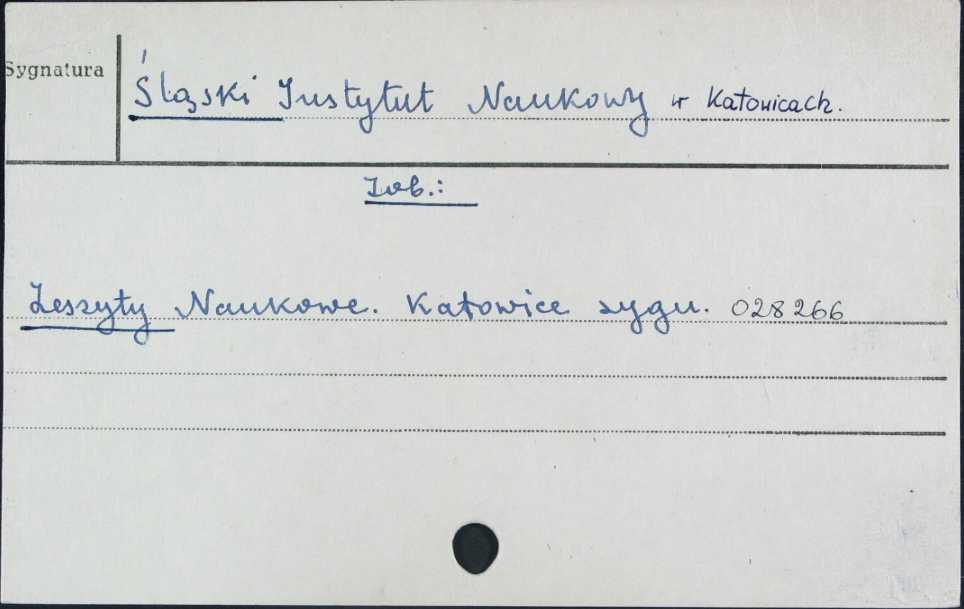 Sygnatura
Śląski Instytut Naukowy w Katowicach.
Zob.:
Zeszyty Naukowe. Katowice sygn. 028266